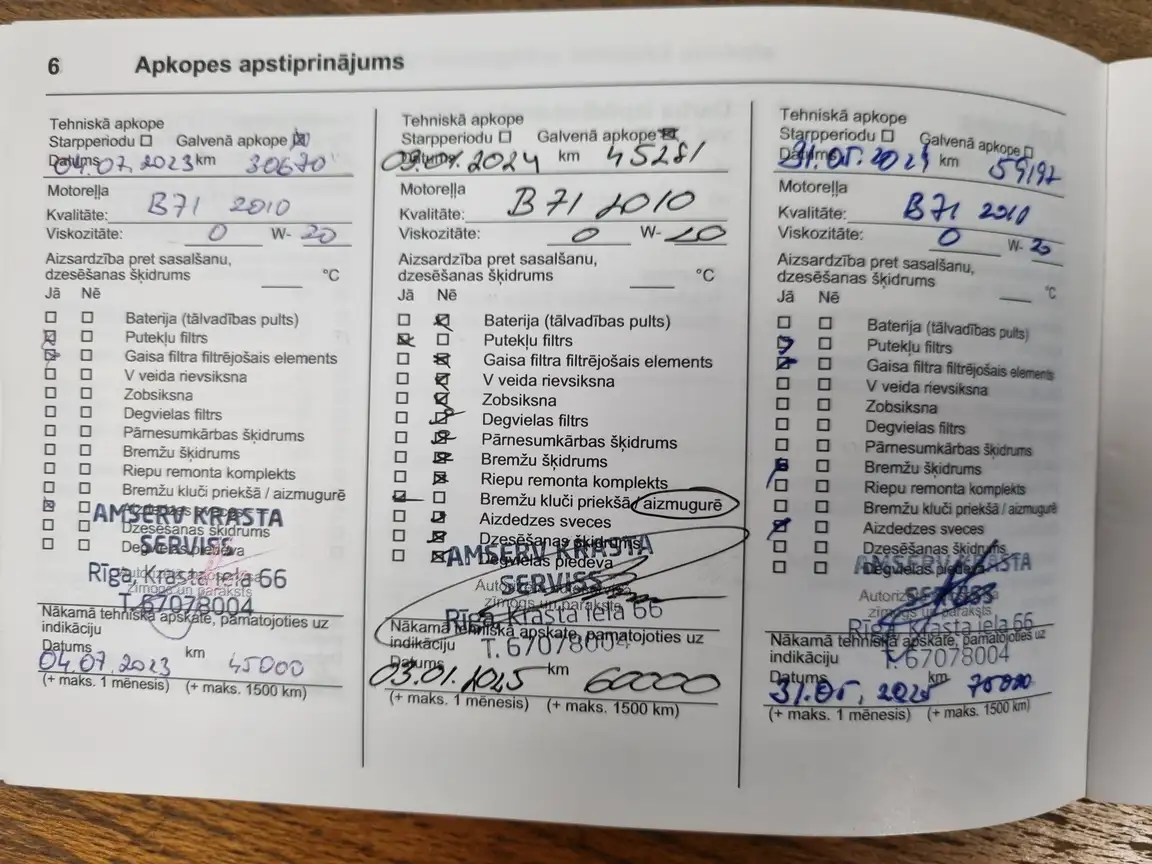 6 Apkopes apstiprinājums
Tehniskā apkope
Starpperiodu ☐ Galvenā apkope ☒
Datums 04.07.2023 km 30670
Motoreļļa
Kvalitāte: B71 2010
Viskozitāte: 0 W- 20
Aizsardzība pret sasalšanu,
dzesēšanas šķidrums °C
Jā Nē
☐ ☐ Baterija (tālvadības pults)
☒ ☐ Putekļu filtrs
☒ ☐ Gaisa filtra filtrējošais elements
☐ ☐ V veida rievsiksna
☐ ☐ Zobsiksna
☐ ☐ Degvielas filtrs
☐ ☐ Pārnesumkārbas šķidrums
☐ ☐ Bremžu šķidrums
☐ ☐ Riepu remonta komplekts
☐ ☐ Bremžu kluči priekšā / aizmugurē
☒ ☐ Aizdedzes sveces
AMSERV KRASTA
☐ ☐ Dzesēšanas šķidrums
SERVISS
☐ ☐ Degvielas piedeva
Rīga, Krasta iela 66
zīmogs un paraksts
T. 67078004
Nākamā tehniskā apskate, pamatojoties uz
indikāciju
Datums km
04.07.2023 45000
(+ maks. 1 mēnesis) (+ maks. 1500 km)
Tehniskā apkope
Starpperiodu ☐ Galvenā apkope ☒
Datums 03.01.2024 km 45281
Motoreļļa
Kvalitāte: B71 2010
Viskozitāte: 0 W- 20
Aizsardzība pret sasalšanu,
dzesēšanas šķidrums °C
Jā Nē
☐ ☒ Baterija (tālvadības pults)
☒ ☐ Putekļu filtrs
☐ ☒ Gaisa filtra filtrējošais elements
☐ ☒ V veida rievsiksna
☐ ☒ Zobsiksna
☐ ☒ Degvielas filtrs
☐ ☒ Pārnesumkārbas šķidrums
☐ ☒ Bremžu šķidrums
☐ ☒ Riepu remonta komplekts
☒ ☐ Bremžu kluči priekšā / aizmugurē
☐ ☒ Aizdedzes sveces
☐ ☒ Dzesēšanas šķidrums
AMSERV KRASTA
☐ ☒ Degvielas piedeva
SERVISS
zīmogs un paraksts
Rīga, Krasta iela 66
Nākamā tehniskā apskate, pamatojoties uz
indikāciju T. 67078004
Datums km
03.01.2025 60000
(+ maks. 1 mēnesis) (+ maks. 1500 km)
Tehniskā apkope
Starpperiodu ☐ Galvenā apkope ☐
Datums 31.05.2024 km 59197
Motoreļļa
Kvalitāte: B71 2010
Viskozitāte: 0 W- 20
Aizsardzība pret sasalšanu,
dzesēšanas šķidrums °C
Jā Nē
☐ ☐ Baterija (tālvadības pults)
☒ ☐ Putekļu filtrs
☒ ☐ Gaisa filtra filtrējošais elements
☐ ☐ V veida rievsiksna
☐ ☐ Zobsiksna
☐ ☐ Degvielas filtrs
☐ ☐ Pārnesumkārbas šķidrums
☒ ☐ Bremžu šķidrums
☐ ☐ Riepu remonta komplekts
☐ ☐ Bremžu kluči priekšā / aizmugurē
☒ ☐ Aizdedzes sveces
☐ ☐ Dzesēšanas šķidrums
AMSERV KRASTA
☐ ☐ Degvielas piedeva
SERVISS
zīmogs un paraksts
Rīga, Krasta iela 66
Nākamā tehniskā apskate, pamatojoties uz
indikāciju T. 67078004
Datums km
31.05.2025 75000
(+ maks. 1 mēnesis) (+ maks. 1500 km)